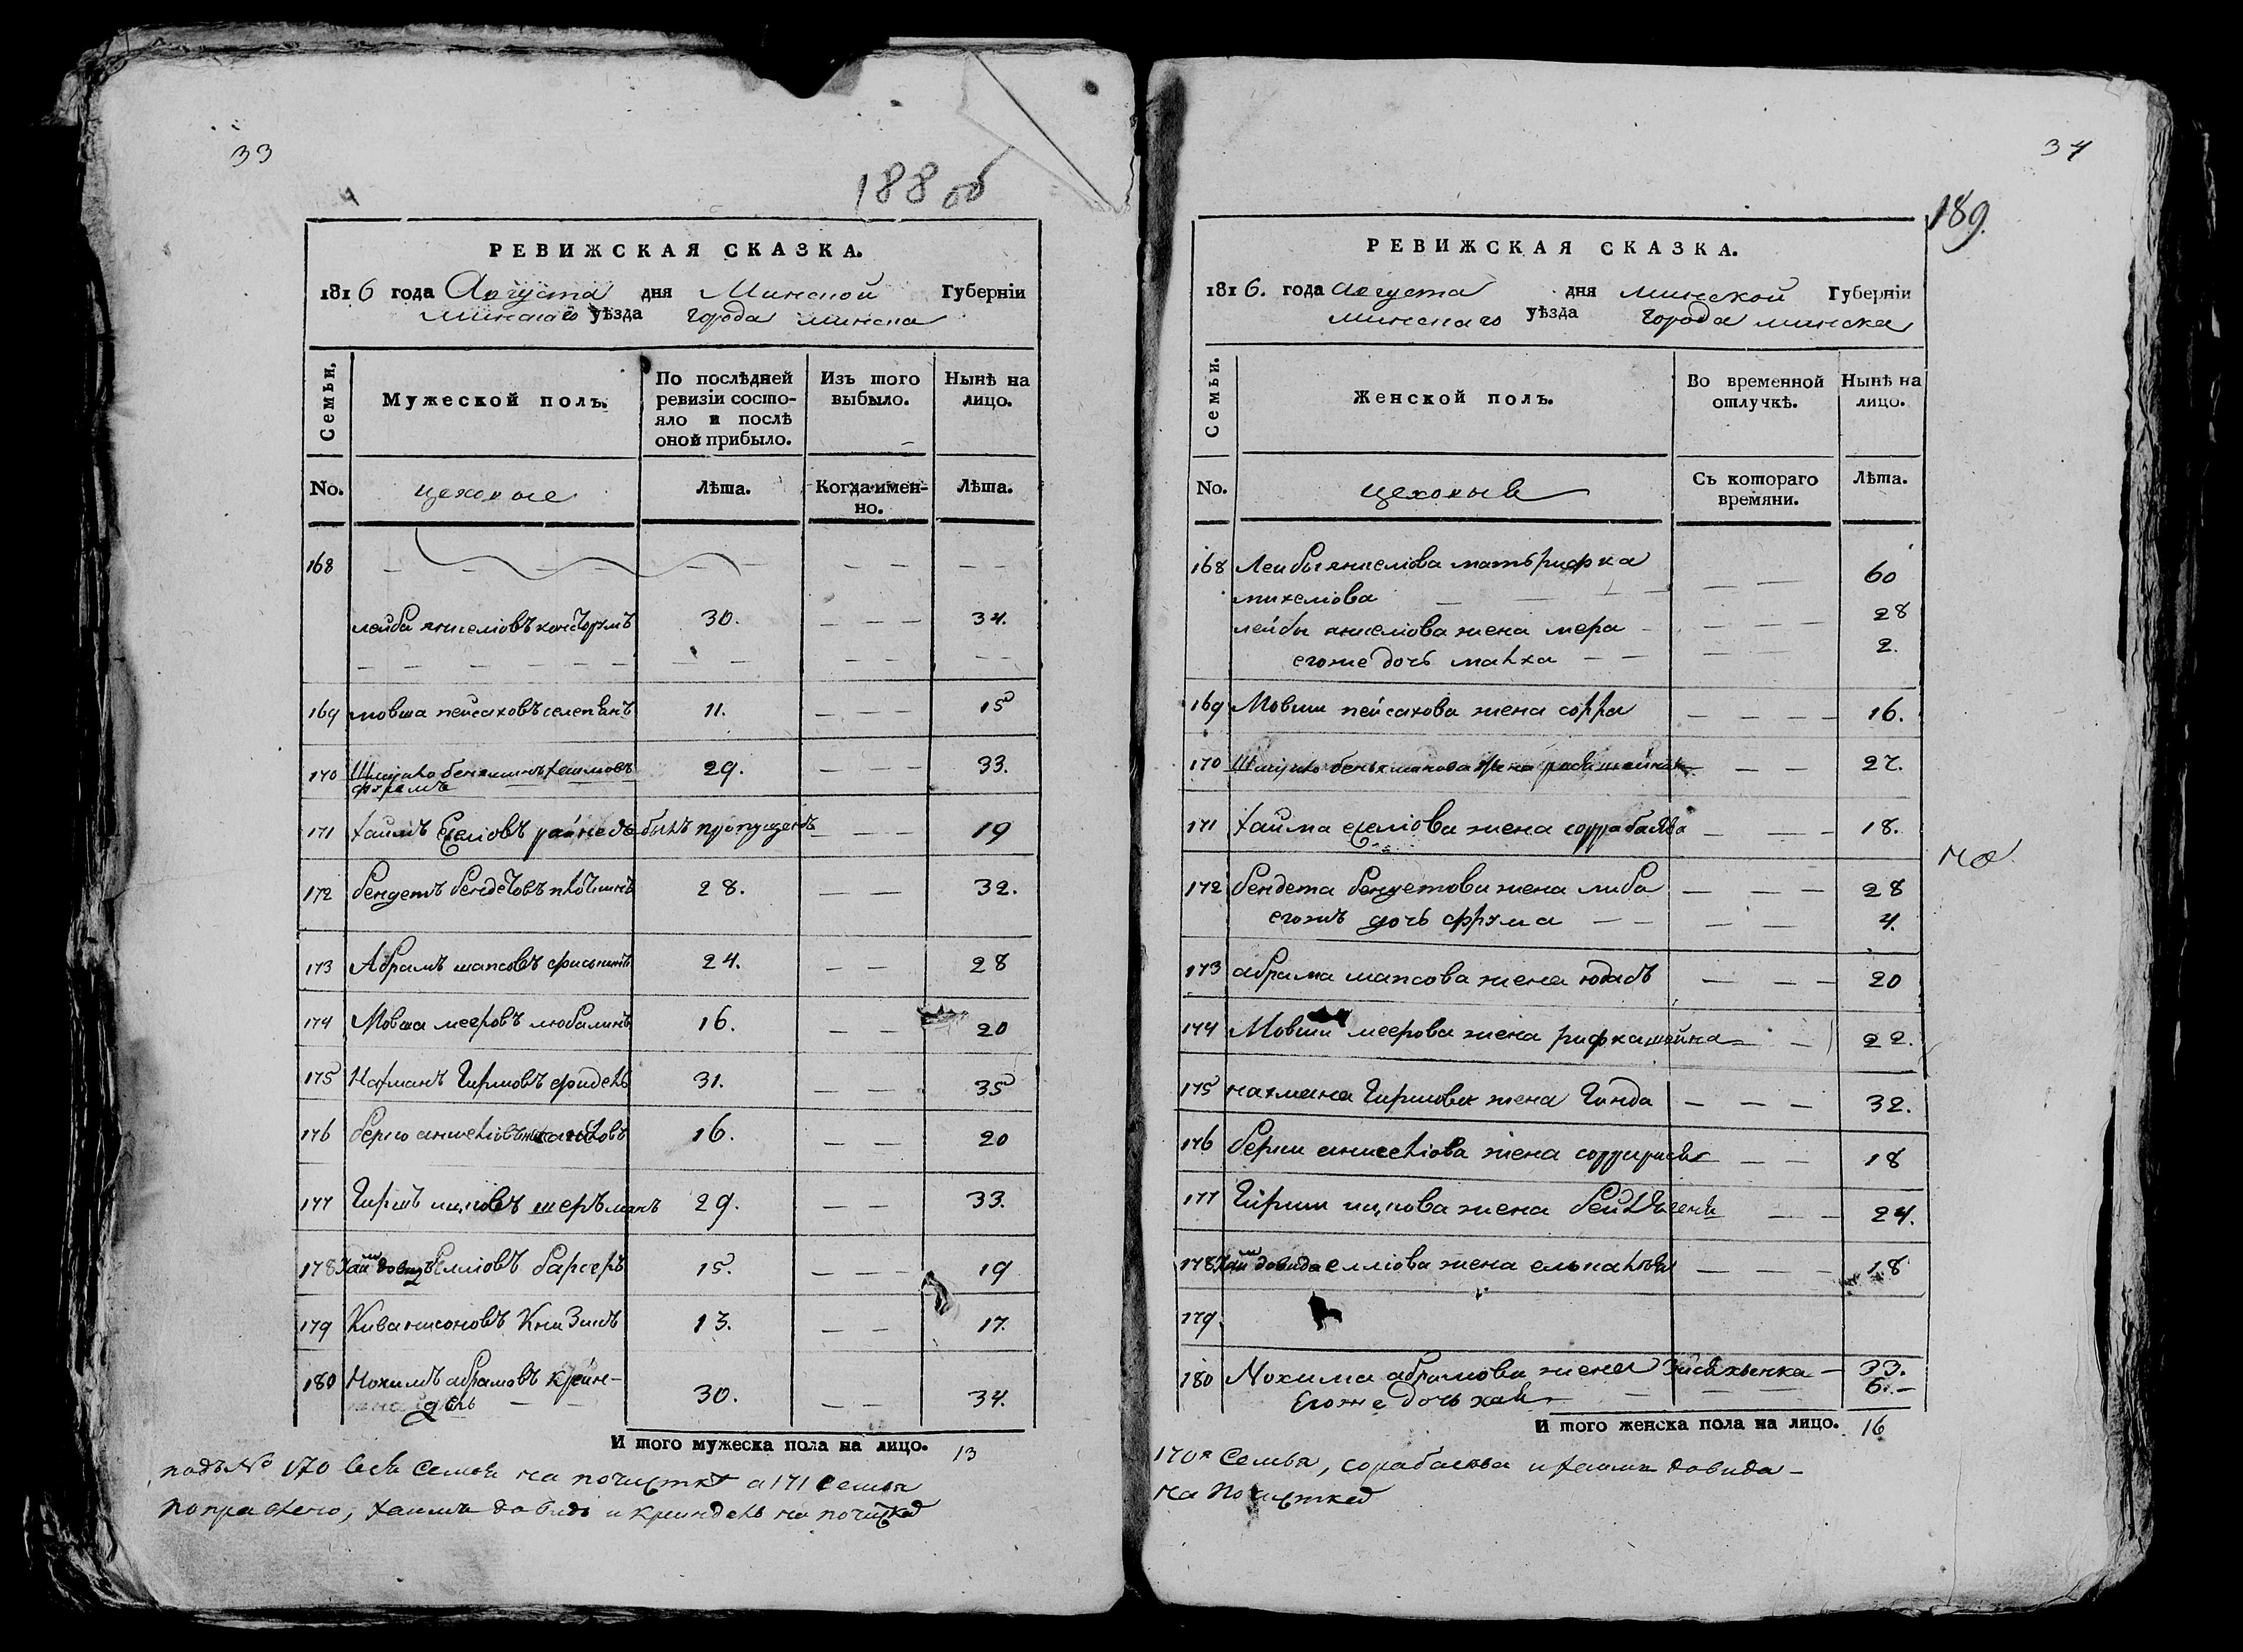 33
188 об
РЕВИЖСКАЯ СКАЗКА.
1816 года Августа дня Минской Губерніи
Минскаго уѣзда города минска
Семьи, Мужеской полъ. По послѣдней ревизіи состо-яло и послѣ оной прибыло. Изъ того выбыло. Нынѣ на лицо.
No. цеховые Лѣта. Когда имен-но. Лѣта.
168 — — — — — — — —
лейба янкеліовъ 30. — — — 34.
169 мовша пейсаховъ селепянъ 11. — — — 15
170 Шлиомо бенхминъ хаимовъ 29. — — — 33.
фрумъ
171 хаимъ Ехеліовъ былъ пропущенъ — — — 19
172 бендетъ бендетовъ плоткинъ 28. — — — 32.
173 Абрамъ шапсовъ 24. — — 28
174 Мовша мееровъ любалинъ 16. — — 20
175 Нахманъ Гиршовъ фридель 31. — — 35
176 берко 16. — — 20
177 Гиршъ ицковъ шерѣманъ 29. — — 33.
178 Хаим довидъ Еліовъ барсеръ 15. — — — 19
179 Кива нисоновъ 13. — — 17.
180 Нохимъ абрамовъ Крейн-
дель 30. — — 34.
И того мужеска пола на лицо. 13
подъ № 170 вся семья на почистке а 171 семья
поправлено, хаимъ довидъ и крейндель на почистке
34
189.
РЕВИЖСКАЯ СКАЗКА.
1816. года августа дня минской Губерніи
минскаго уѣзда города минска
Семьи. Женской полъ. Во временной отлучкѣ. Нынѣ на лицо.
No. цеховыя Съ котораго времяни. Лѣта.
168 Лейбы янкеліова мать рифка — — 60
михеліова
лейбы янкеліова жена мера — — — 28
егоже дочь малка — — 2.
169 Мовши пейсахова жена сорра — — — — 16.
170 жена — — 27.
171 хаима ехеліова жена сорра башва — — — 18.
на
172 бендета бендетова жена либа — — — 28
егожъ дочь фрума — — 4.
173 абрама шапсова жена юдасъ — — — 20
174 Мовши меерова жена рифка шейна — 22.
175 нахмана Гиршова жена Гинда — — — 32.
176 жена — — 18
177 Гирши ицкова жена — — 24.
178 Хаим довида еліова жена — — — — 18
179.
180 Нохима абрамова жена — 33.
Егоже дочь хая — — — 6.—
И того женска пола на лицо. 16
170я Семья, сорабашва и хаима довида —
на почистке